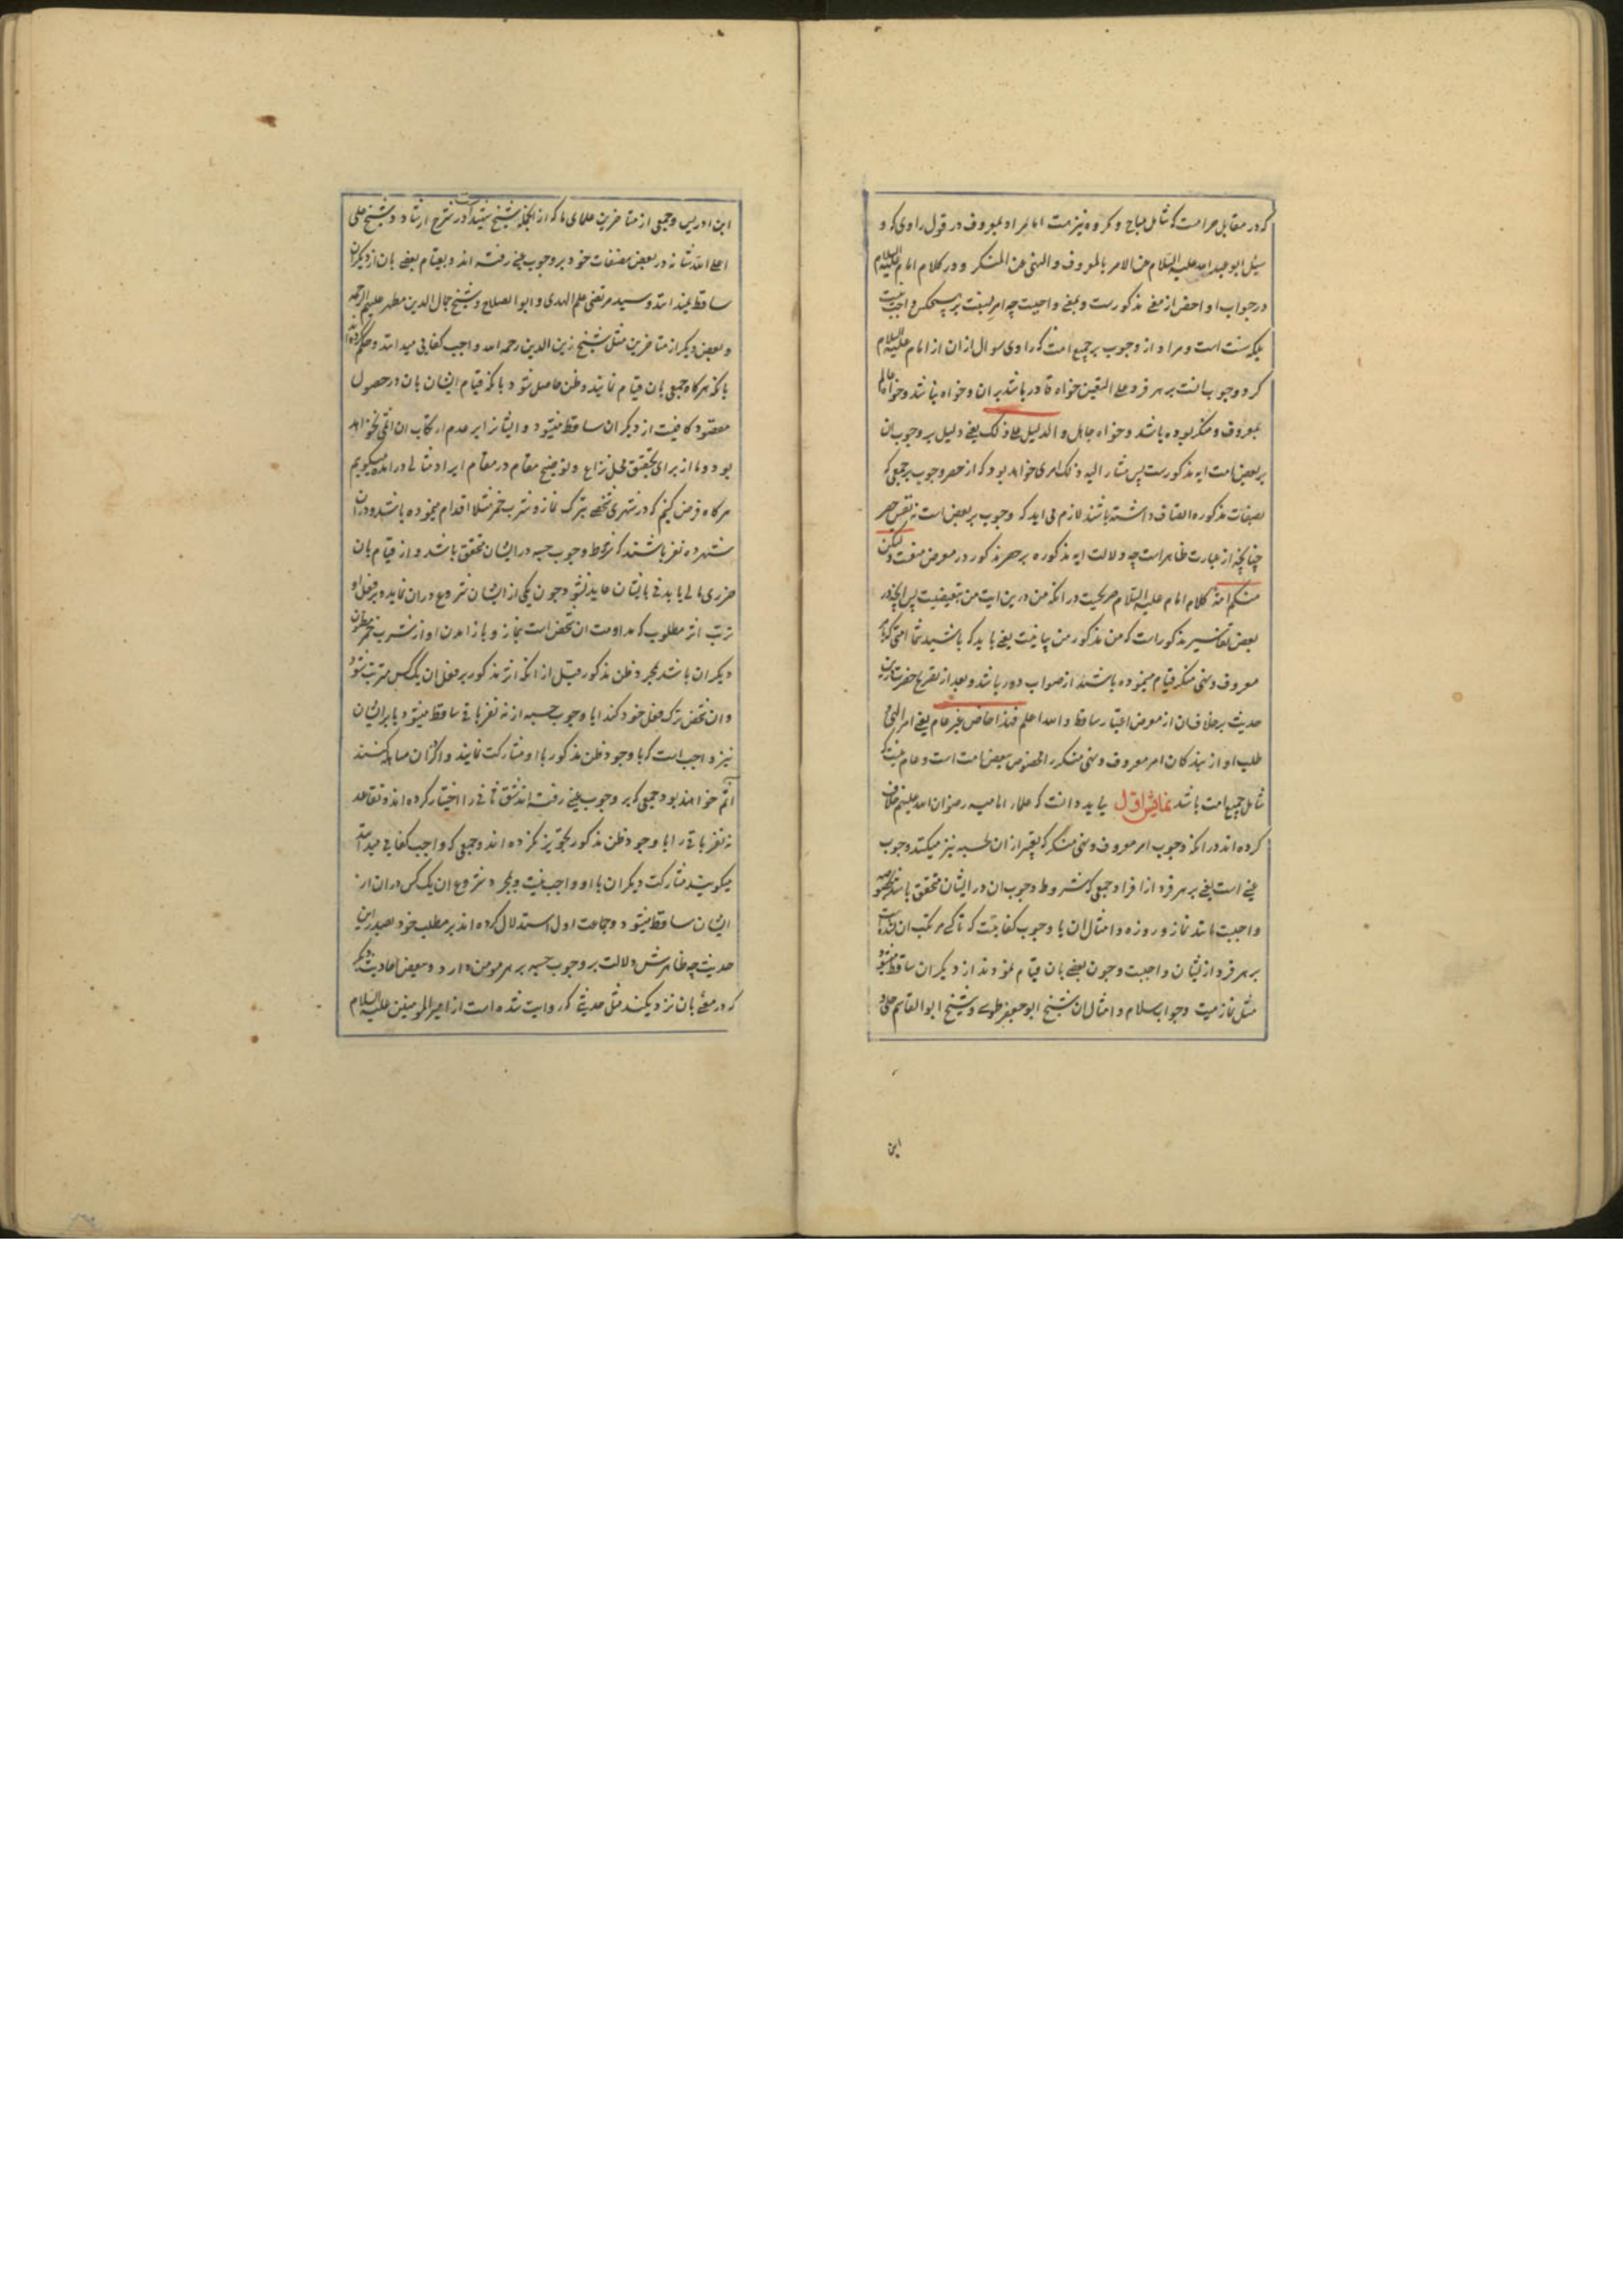 که در مقابل حرامست که شامل مباح و مکروه نیز هست اما مراد بمعروف در قول راوی که و
سئل ابو عبد الله علیه السلام عن الامر بالمعروف و النهی عن المنکر و در کلام امام علیه السلام
در جواب او اخص از معنی مذکورست و بمعنی واجبست چه امر بسنت بر هیچکس واجب نیست
بلکه سنت است و مراد از وجوب بر جمیع امت که راوی سوال از ان از امام علیه السلام
کرد وجوب انست بر هر فرد علی التعین خواه قادر باشد بر ان و خواه نباشد و خواه عالم
بمعروف و منکر بوده باشد و خواه جاهل و الدلیل علی ذلک یعنی دلیل بر وجوب ان
بر بعض امت ایه مذکورست پس مشار الیه ذلک امری خواهد بود که از حصر وجوب بر جمعی که
بصفات مذکوره اتصاف داشته باشند لازم می اید که وجوب بر بعض است نه نفس حصر
چنانچه از عبارت ظاهر است چه دلالت ایه مذکوره بر حصر مذکور در معرض منعست ولیکن
منکم امة کلام امام علیه السلام صریحست در انکه من درین ایت من تبعیضیت پس انچه در
بعض تفاسیر مذکور است که من مذکور من بیانیت یعنی باید که باشید شما امتی که بامر
معروف و نهی منکر قیام مینموده باشند از صواب دور باشد و بعد از تصریح حضرت درین
حدیث بر خلاف ان از معرض اعتبار ساقط و الله اعلم فهذا خاص غیر عام یعنی امر الهی و
طلب او از بندکان امر معروف و نهی منکر را مخصوص بعض امت است و عام نیست که
شامل جمیع امت باشد نمایش اول بباید دانست که علماء امامیه رضوان الله علیهم خلاف
کرده اند در انکه وجوب امر معروف و نهی منکر که تعبیر از ان بحسبه نیز میکنند وجوب
عینی است یعنی بر هر فرد از افراد جمعی که شروط وجوب ان در ایشان متحقق باشد بخصوصه
واجبست مانند نماز و روزه و امثال ان یا وجوب کفایتست که تا کسی مرتکب ان نشده است
بر هر فرد از ایشان واجبست و چون بعضی بان قیام نمودند از دیکران ساقط میشود
مثل نماز میت و جواب سلام و امثال ان شیخ ابو جعفر طوسی و شیخ ابو القاسم حلی و
این
ابن ادریس و جمعی از متاخرین علمای ما که از انجمله شیخ شهید است در شرح ارشاد و شیخ علی
اعلی الله شانه در بعض مصنفات خود بر وجوب عینی رفته اند و بقیام بعضی بان از دیکران
ساقط نمیدانند و سید مرتضی علم الهدی و ابو الصلاح و شیخ جمال الدین مطهر علیهم الرحمه
و بعض دیکر از متاخرین مثل شیخ زین الدین رحمه الله واجب کفایی میدانند و حکم کرده اند
بانکه هرکاه جمعی بان قیام نمایند و ظن حاصل شود بانکه قیام ایشان بان در حصول
مقصود کافیست از دیکران ساقط میشود و ایشانرا بر عدم ارتکاب ان اثمی نخواهد
بود و ما از برای تحقیق محل نزاع و توضیح مقام در مقام ایراد مثالی در امده میکوییم
هرکاه فرض کنیم که در شهری شخصی بترک نماز و شرب خمر مثلا اقدام مینموده باشد و در ان
شهر ده نفر باشند که شروط وجوب حسبه در ایشان متحقق باشد و از قیام بان
ضرری مالی یا بدنی بایشان عاید نشود و چون یکی از ایشان شروع در ان نماید و بر فعل او
ترتب اثر مطلوب که مداومت ان شخص است بنماز و باز امدن او از شرب خمر مظنون
دیکران باشد بمجرد ظن مذکور قبل از انکه اثر مذکور بر فعل ان یک کس مترتب شود
و ان شخص ترک فعل خود کند ایا وجوب حسبه از نه نفر باقی ساقط میشود یا بر ایشان
نیز واجب است که با وجود ظن مذکور با او مشارکت نمایند و اکر در ان مساهله کنند
اثم خواهند بود جمعی که بر وجوب عینی رفته اند شق ثانی را اختیار کرده اند و تقاعد
نه نفر باقی را با وجود ظن مذکور تجویز نکرده اند و جمعی که واجب کفایی میدانند
میکویند مشارکت دیکران با او واجب نیست و بمجرد شروع ان یک کس در ان از
ایشان ساقط میشود و جماعت اول استدلال کرده اند بر مطلب خود بصدر این
حدیث چه ظاهرش دلالت بر وجوب حسبه بر هر مومن دارد و ببعض احادیث دیکر
که در معنی بان نزدیکند مثل حدیثی که روایت شده است از امیر المومنین علیه السلام